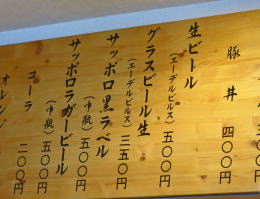 豚丼 四〇〇円
生ビール
(エーデルピルス) 五〇〇円
グラスビール生
(エーデルピルス) 三五〇円
サッポロ黒ラベル
(中瓶) 五〇〇円
サッポロラガービール
(中瓶) 五〇〇円
コーラ 二〇〇円
オレン